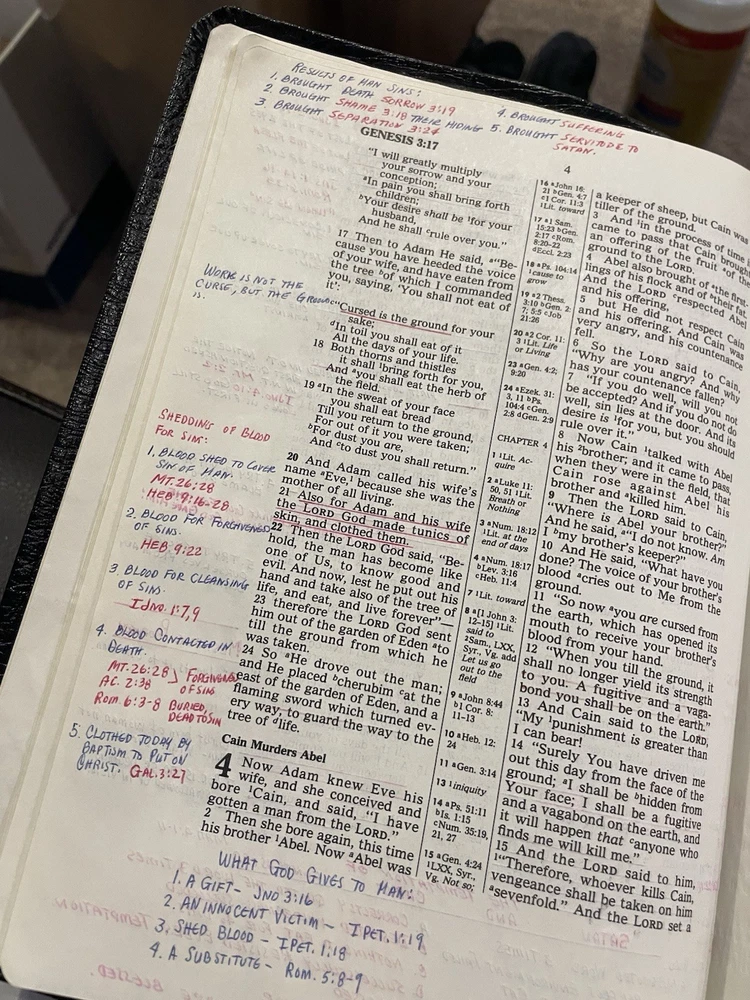 RESULTS OF MAN SINS:
1. BROUGHT DEATH SORROW 3:19
2 BROUGHT SHAME 3:18 THEIR HIDING
3. BROUGHT SEPARATION 3:24
4. BROUGHT SUFFERING
5. BROUGHT SERVITUDE TO
SATAN.
GENESIS 3:17
4
"I will greatly multiply
your sorrow and your
conception;
aIn pain you shall bring forth
children;
bYour desire shall be 1for your
husband,
And he shall crule over you."
17 Then to Adam He said, a"Be-
cause you have heeded the voice
of your wife, and have eaten from
the tree bof which I commanded
you, saying, 'You shall not eat of
it':
WORK IS NOT THE
CURSE, BUT THE GROUND
IS.
c"Cursed is the ground for your
sake;
dIn toil you shall eat of it
All the days of your life.
18 Both thorns and thistles
it shall 1bring forth for you,
And ayou shall eat the herb of
the field.
19 aIn the sweat of your face
you shall eat bread
Till you return to the ground,
For out of it you were taken;
bFor dust you are,
And cto dust you shall return."
20 And Adam called his wife's
name aEve,1 because she was the
mother of all living.
21 Also for Adam and his wife
the LORD God made tunics of
skin, and clothed them.
22 Then the LORD God said, "Be-
hold, the man has become like
one of Us, to know good and
evil. And now, lest he put out his
hand and take also of the tree of
life, and eat, and live forever"—
23 therefore the LORD God sent
him out of the garden of Eden ato
till the ground from which he
was taken.
24 So aHe drove out the man;
and He placed bcherubim cat the
east of the garden of Eden, and a
flaming sword which turned ev-
ery way, to guard the way to the
tree of dlife.
Cain Murders Abel
4 Now Adam knew Eve his
wife, and she conceived and
bore 1Cain, and said, "I have
gotten a man from the LORD."
2 Then she bore again, this time
his brother 1Abel. Now aAbel was
SHEDDING OF BLOOD
FOR SINS:
1. BLOOD SHED TO COVER
SIN OF MAN.
MT. 26:28
HEB 9:16-28
2. BLOOD FOR FORGIVENESS
OF SINS.
HEB. 9:22
3 BLOOD FOR CLEANSING
OF SINS.
1 JNO. 1:7,9
4. BLOOD CONTACTED IN
DEATH.
MT. 26:28 FORGIVENESS
AC. 2:38 OF SINS
ROM. 6:3-8 BURIED,
DEAD TO SIN
5. CLOTHED TODAY BY
BAPTISM TO PUT ON
CHRIST. GAL. 3:27
16 aJohn 16:
21 bGen. 4:7
c1 Cor. 11:3
1Lit. toward
17 a1 Sam.
15:23 bGen.
2:17 cRom.
8:20-22
dEccl. 2:23
18 aPs. 104:14
1cause to
grow
19 a2 Thess.
3:10 bGen. 2:
7; 5:5 cJob
21:26
20 a2 Cor. 11:
3 1Lit. Life
or Living
23 aGen. 4:2;
9:20
24 aEzek. 31:
3, 11 bPs.
104:4 cGen.
2:8 dGen. 2:9
CHAPTER 4
1 1Lit. Ac-
quire
2 aLuke 11:
50, 51 1Lit.
Breath or
Nothing
3 aNum. 18:12
1Lit. at the
end of days
4 aNum. 18:17
bLev. 3:16
cHeb. 11:4
7 1Lit. toward
8 a[1 John 3:
12-15] 1Lit.
said to
2Sam., LXX,
Syr., Vg. add
Let us go
out to the
field
9 aJohn 8:44
b1 Cor. 8:
11-13
10 aHeb. 12:
24
11 aGen. 3:14
13 1iniquity
14 aPs. 51:11
bIs. 1:15
cNum. 35:19,
21, 27
15 aGen. 4:24
1LXX, Syr.,
Vg. Not so;
a keeper of sheep, but Cain was
tiller of the ground.
3 And 1in the process of time
came to pass that Cain brought
an offering of the fruit aof the
ground to the LORD.
4 Abel also brought of athe first-
lings of his flock and of btheir fat.
And the LORD crespected Abel
and his offering,
5 but He did not respect Cain
and his offering. And Cain was
very angry, and his countenance
fell.
6 So the LORD said to Cain,
"Why are you angry? And why
has your countenance fallen?
7 "If you do well, will you not
be accepted? And if you do not do
well, sin lies at the door. And its
desire is 1for you, but you should
rule over it."
8 Now Cain 1talked with Abel
his 2brother; and it came to pass,
when they were in the field, that
Cain rose against Abel his
brother and akilled him.
9 Then the LORD said to Cain,
"Where is Abel your brother?"
And he said, a"I do not know. Am
I bmy brother's keeper?"
10 And He said, "What have you
done? The voice of your brother's
blood acries out to Me from the
ground.
11 "So now ayou are cursed from
the earth, which has opened its
mouth to receive your brother's
blood from your hand.
12 "When you till the ground, it
shall no longer yield its strength
to you. A fugitive and a vaga-
bond you shall be on the earth."
13 And Cain said to the LORD,
"My 1punishment is greater than
I can bear!
14 "Surely You have driven me
out this day from the face of the
ground; aI shall be bhidden from
Your face; I shall be a fugitive
and a vagabond on the earth, and
it will happen that canyone who
finds me will kill me."
15 And the LORD said to him,
1"Therefore, whoever kills Cain,
vengeance shall be taken on him
asevenfold." And the LORD set a
WHAT GOD GIVES TO MAN:
1. A GIFT - JNO 3:16
2. AN INNOCENT VICTIM - I PET. 1:19
3. SHED BLOOD - I PET. 1:18
4. A SUBSTITUTE - ROM. 5:8-9